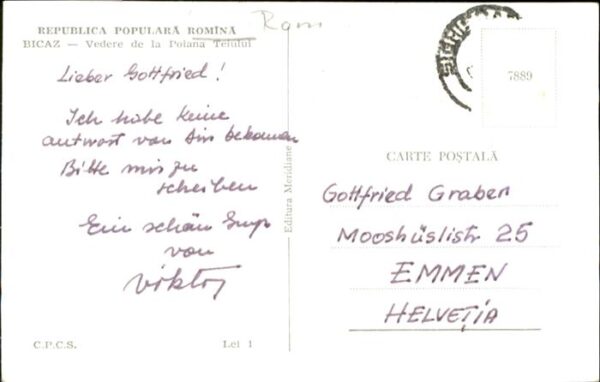 Rom
REPUBLICA POPULARĂ ROMÎNĂ
BICAZ — Vedere de la Poiana Teiului
Lieber Gottfried!
Ich habe keine
antwort von Dir bekomen
Bitte mir zu
scheiben
Ein schön
von
Viktor
C.P.C.S. Lei 1
Editura Meridiane
7889
CARTE POȘTALĂ
Gottfried Graber
Mooshüslistr 25
EMMEN
HELVEȚIA